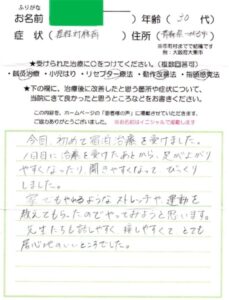 ふりがな
お名前 年齢（50代）
症状（ ）住所（ ）
※市町村までで結構です
例：大阪府大東市
■受けられた治療に○をつけてください。（複数回答可）
・鍼灸治療・小児はり・リセプター療法・動作反復法・指頭感覚法
★下の欄に、治療後に改善したと思う箇所や症状について、
当院にきて良かったと思うところなどをお書きください。
この内容を、ホームページの「患者様の声」に掲載させていただきます。
ご協力ありがとうございました。 ※お名前はイニシャルで掲載します
今回、初めて宿泊治療を受けました。
1日目に治療を受けたあとから、足が上がり
やすくなったり開きやすくなって びっくり
しました。
家でもやれるようなストレッチや運動を
教えてもらったのでやってみようと思います。
先生たちも話しやすく 接しやすくて とても
居心地のいいところでした。